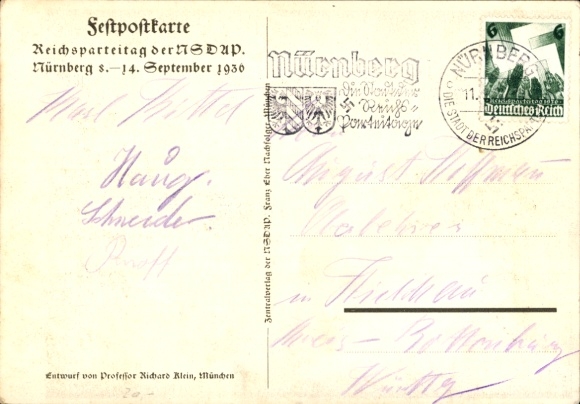 Festpostkarte
Reichsparteitag der NSDAP.
Nürnberg 8.—14. September 1936
Nürnberg
die Stadt der
Reichs-
Parteitage
NÜRNBERG
11.
DIE STADT DER REICHSPAR
6 6
Reichsparteitag 1936
Deutsches Reich
Karl
Haug.
Schneider.
August Hoffmann
in
Kreis- Rottenburg
Württbg
Zentralverlag der NSDAP. Franz Eher Nachfolger, München
Entwurf von Professor Richard Klein, München
20.-